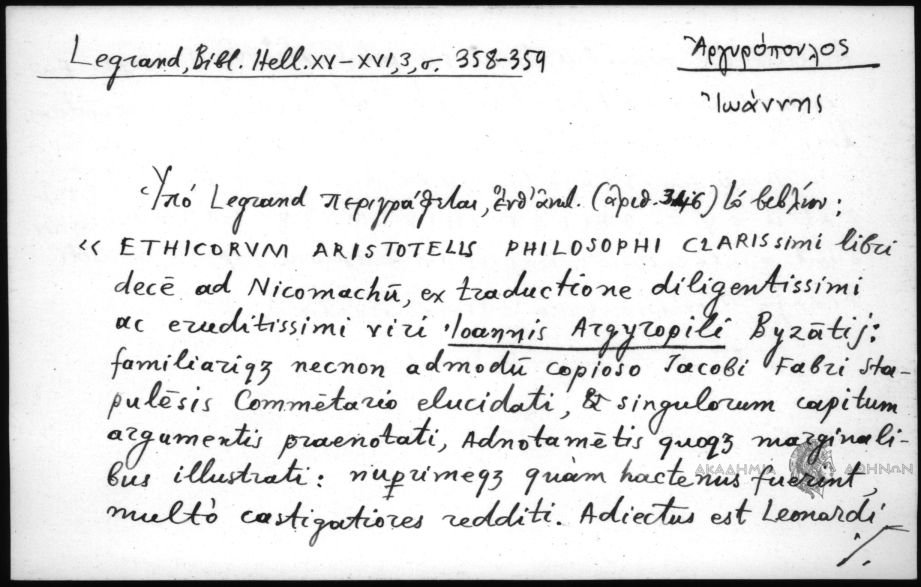 Legrand, Bibl. Hell. XV–XVI, 3, σ. 358–359
Ἀργυρόπουλος
Ἰωάννης
Ὑπό Legrand περιγράφεται, ἐνθ' ἀνωτ. (ἀριθ. 346) τό βιβλίον:
« ETHICORVM ARISTOTELIS PHILOSOPHI CLARISSimi libri
decē ad Nicomachū, ex traductione diligentissimi
ac eruditissimi viri Ioannis Argyropili Byzātij:
familiariqꝫ necnon admodū copioso Jacobi Fabri sta-
pulēsis Commētario elucidati, & singulorum capitum
argumentis praenotati, Adnotamētis quoqꝫ marginali-
bus illustrati: nuꝑrimeqꝫ quàm hactenus fuerint,
multò castigatiores redditi. Adiectus est Leonardi
ΑΚΑΔΗΜΙΑ ΑΘΗΝΩΝ